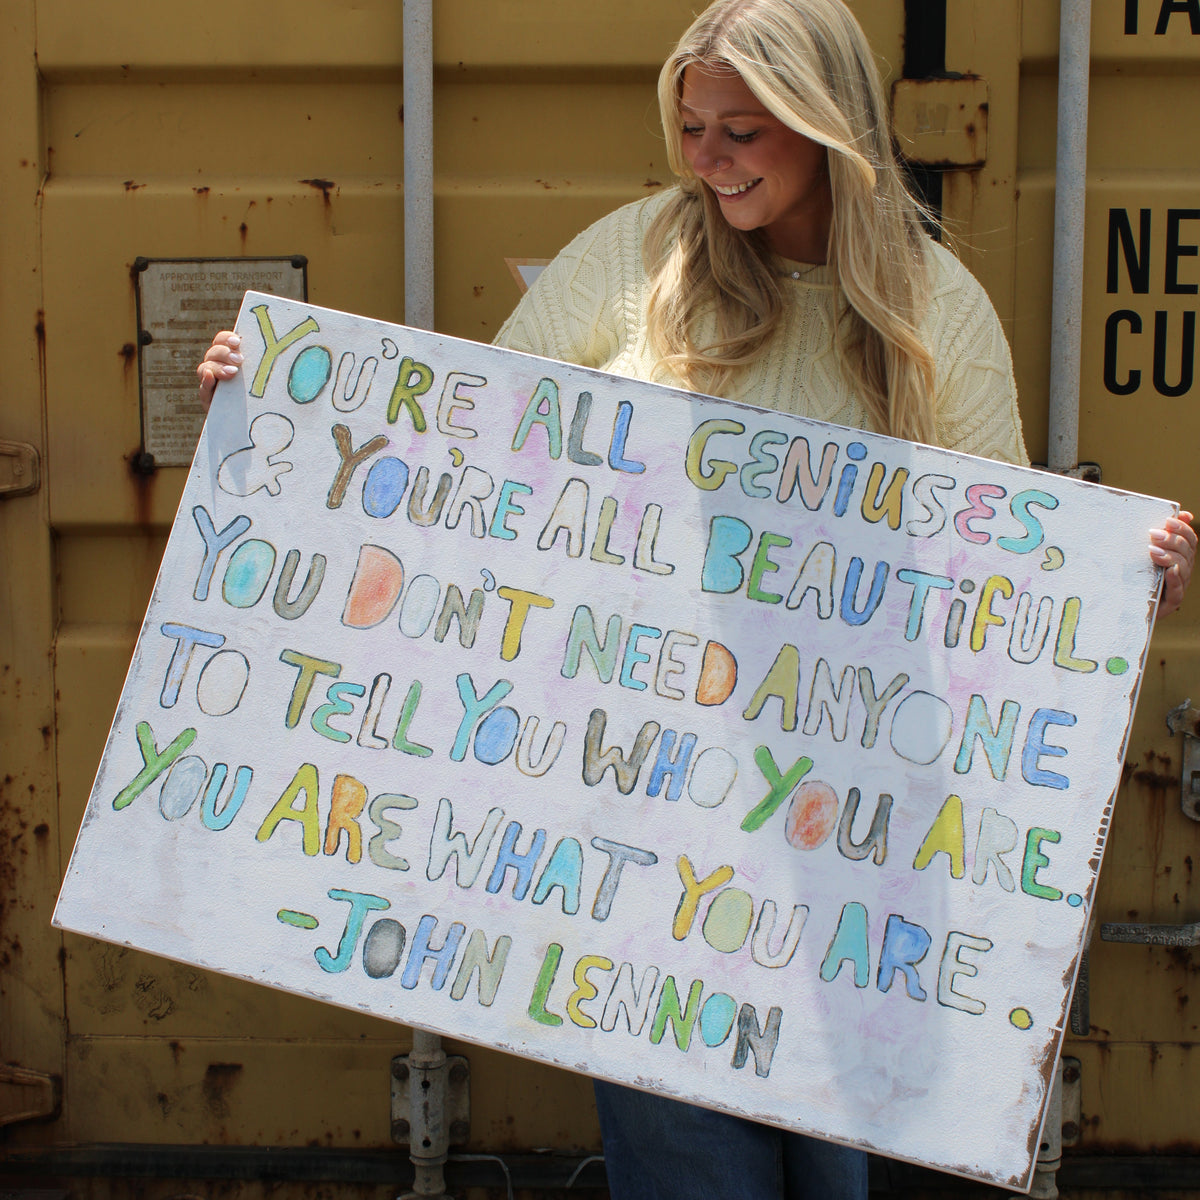 TA
NE
CU
APPROVED FOR TRANSPORT
UNDER CUSTOMS SEAL
YOU'RE ALL GENIUSES,
& YOU'RE ALL BEAUTIFUL.
YOU DON'T NEED ANYONE
TO TELL YOU WHO YOU ARE.
YOU ARE WHAT YOU ARE.
-JOHN LENNON